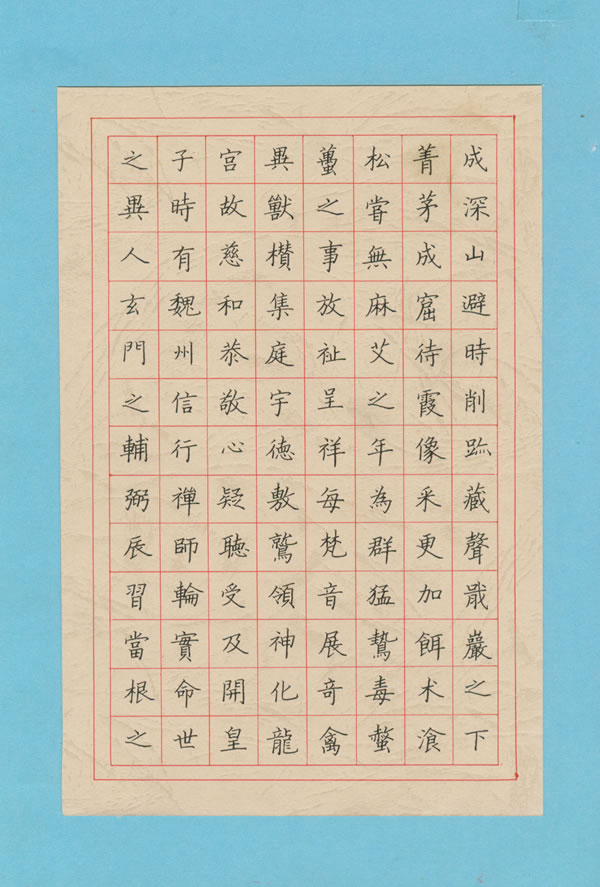 成深山避時削跡藏聲戢巖之下
菁茅成窟待霞像采更加餌术飡
松甞無麻艾之年為群猛鷙毒螫
蠆之事放祉呈祥每梵音展奇禽
異獸櫕集庭宇徳敷鷲領神化龍
宫故慈和恭敬心疑聴受及開皇
子時有魏州信行禪師輪實命世
之異人玄門之輔弼辰習當根之